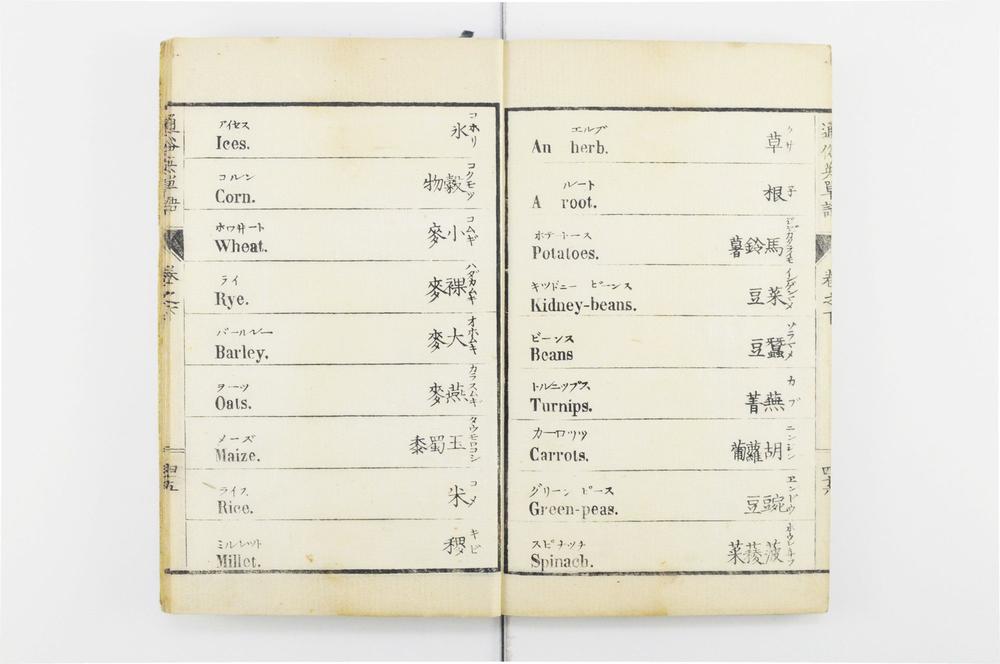 通俗英單語
卷之下
四十五
アイセス
Ices.
氷
コホリ
コルン
Corn.
穀物
コクモツ
ホウ井ート
Wheat.
小麥
コムギ
ライ
Rye.
裸麥
ハダカムギ
バールレー
Barley.
大麥
オホムギ
ヲーツ
Oats.
燕麥
カラスムギ
メーズ
Maize.
玉蜀黍
タウモロコシ
ライス
Rice.
米
コメ
ミルレット
Millet.
稷
キビ
エルブ
An herb.
草
クサ
ルート
A root.
根
子
ポテートース
Potatoes.
馬鈴薯
ジヤガタライモ
キツドニー ビーンス
Kidney-beans.
菜豆
インゲンマメ
ビーンス
Beans
蠶豆
ソラマメ
トルニップス
Turnips.
蕪菁
カブ
カーロッツ
Carrots.
胡蘿蔔
ニンジン
グリーン ピース
Green-peas.
豌豆
ヱンドウ
スピナッチ
Spinach.
菠薐菜
ホウレンサフ
通俗英單語
卷之下
四十六